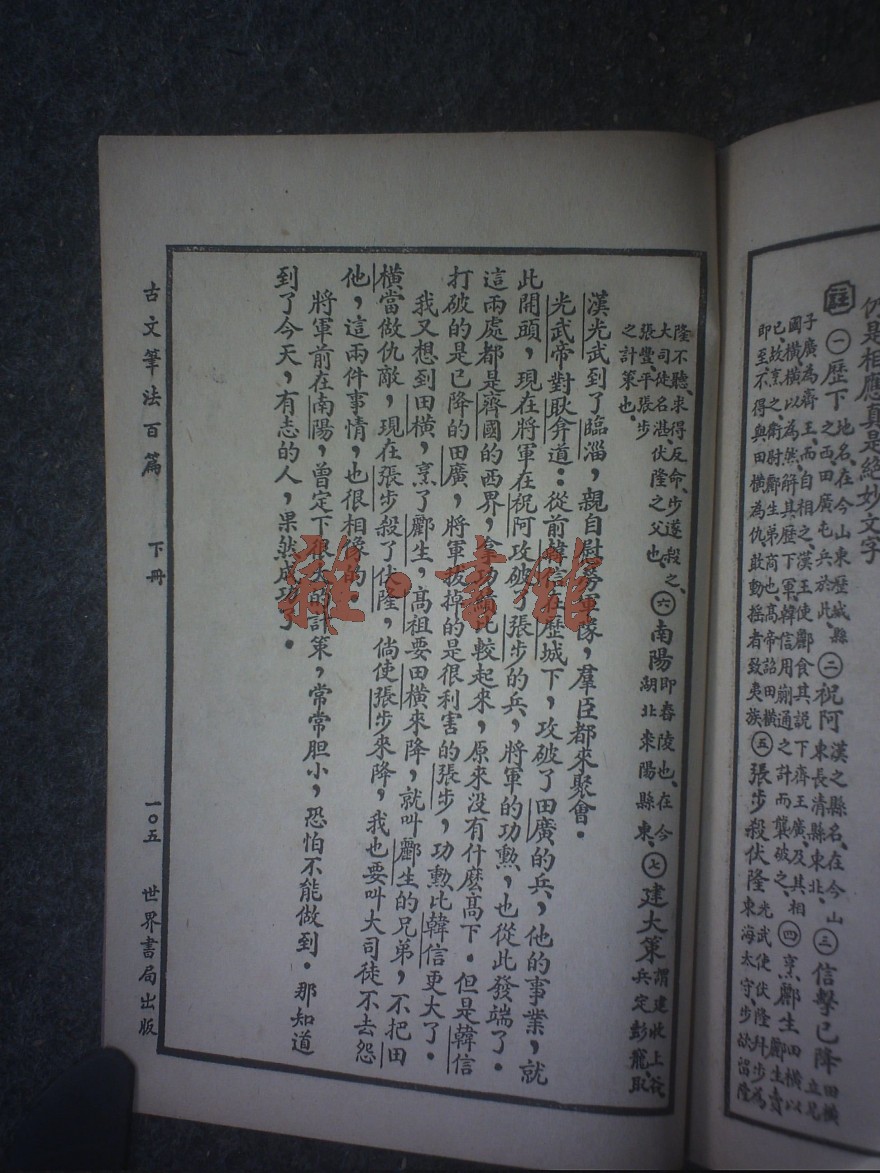 仍是相應真是絕妙文字
註㊀歷下地名、在今山東歷城縣之西、田廣屯兵於此、㊁祝阿漢之縣名、在今山東長清縣東北、㊂信擊已降田橫立兄
子廣為齊王、而自相之、漢王使酈食其說下齊王廣、及其相
國橫、橫以為然、解其歷下軍、韓信用蒯通之計而襲破之、㊃烹酈生田橫以酈生賣
已、故烹之、衛尉酈生弟商也、高帝詔田橫
即至、不得與田橫為仇、敢動搖者致夷族㊄張步殺伏隆光武使伏隆拜步為東海太守、步欲留隆
隆不聽、求得反命、步遂殺之、
大司徒名湛、伏隆之父也、㊅南陽即舂陵也、在今湖北棗陽縣東、㊆建大策謂建收上谷兵定彭寵、取
張豐、平張步
之計策也、
漢光武到了臨淄，親自慰勞軍隊，羣臣都來聚會．
光武帝對耿弇道：從前韓信在歷城下，攻破了田廣的兵，他的事業，就
此開頭，現在將軍在祝阿攻破了張步的兵，將軍的功勲，也從此發端了．
這兩處都是齊國的西界，拿功績比較起來，原來没有什麽高下．但是韓信
打破的是已降的田廣，將軍拔掉的是很利害的張步，功勲比韓信更大了．
我又想到田橫，烹了酈生，高祖要田橫來降，就叫酈生的兄弟，不把田
橫當做仇敵，現在張步殺了伏隆，倘使張步來降，我也要叫大司徒不去怨
他，這兩件事情，也很相像的．
將軍前在南陽，曾定下很大的計策，常常胆小，恐怕不能做到．那知道
到了今天，有志的人，果然成功了．
古文筆法百篇 下冊 一〇五 世界書局出版
雜·書館